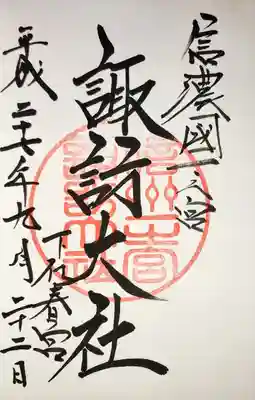 信濃國一之宮
諏訪大社
下社春宮
平成二十七年九月二十二日